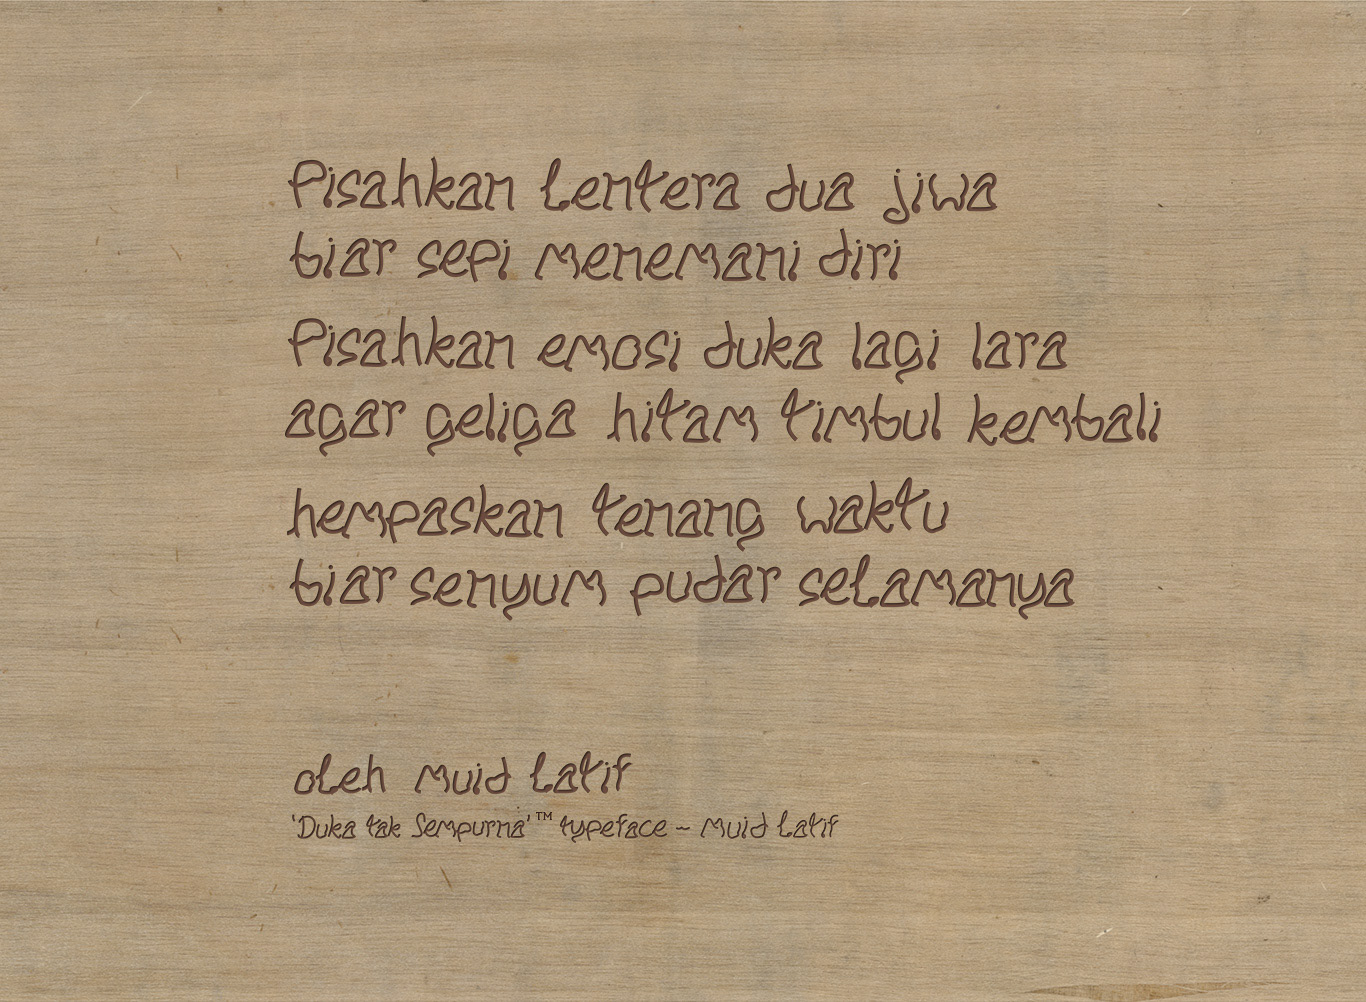 Pisahkan lentera dua jiwa
biar sepi menemani diri
Pisahkan emosi duka lagi lara
agar geliga hitam timbul kembali
hempaskan tenang waktu
biar senyum pudar selamanya
oleh Muid Latif
'Duka tak Sempurna'™ typeface ~ Muid Latif